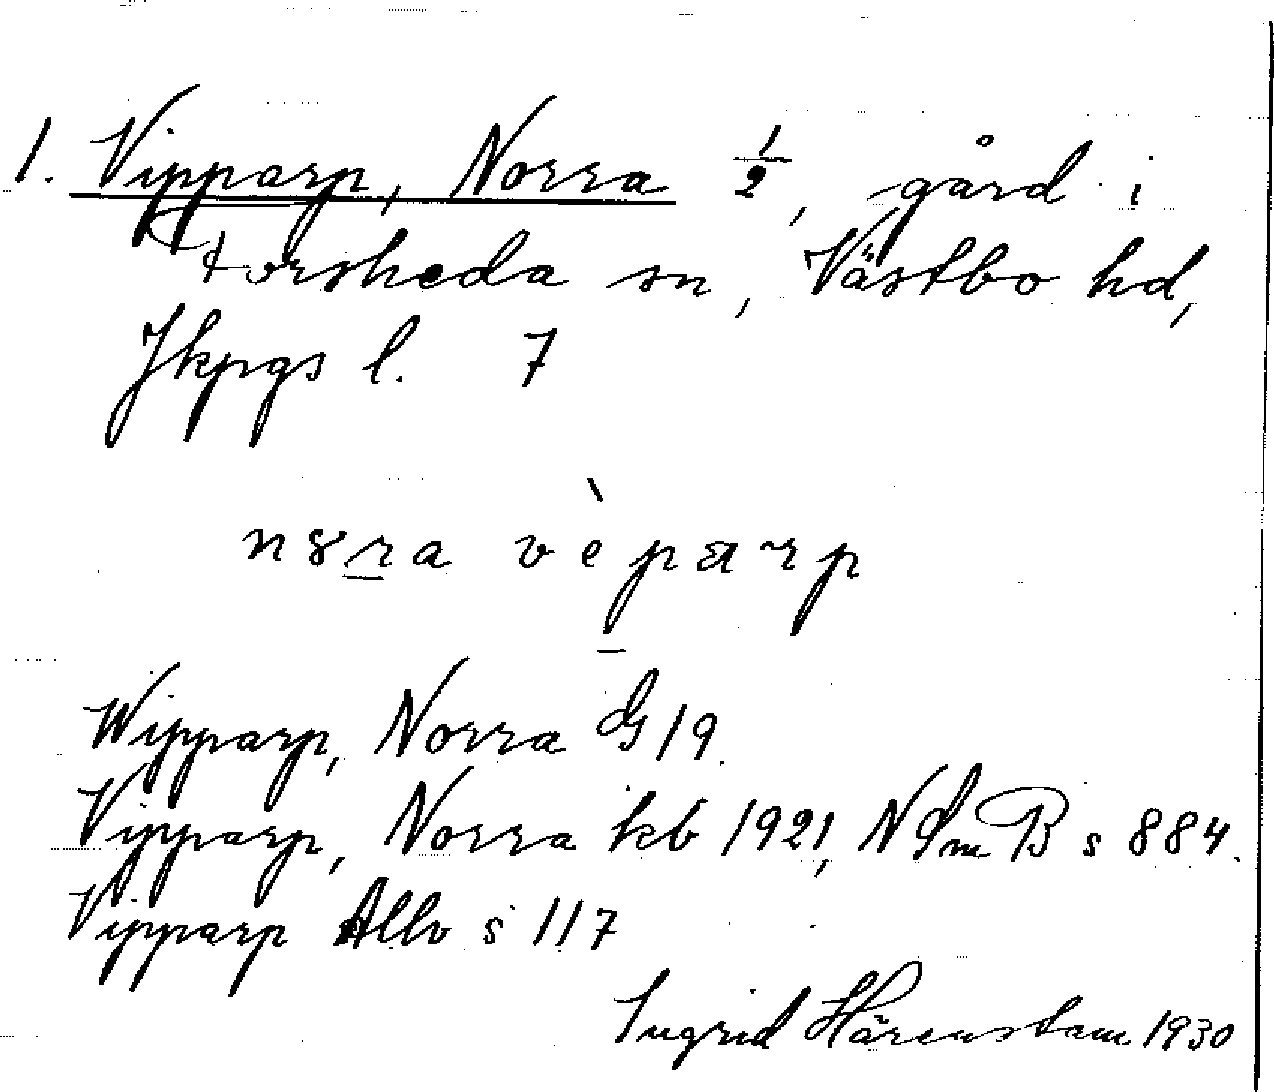 1. Vipparp, Norra 1/2, gård i
Forsheda sn, Västbo hd,
Jkpgs l. 7
Wipparp, Norra G 19.
Vipparp, Norra kb 1921, NSmB s 884.
Vipparp Allv s 117
Ingrid Härenstam 1930